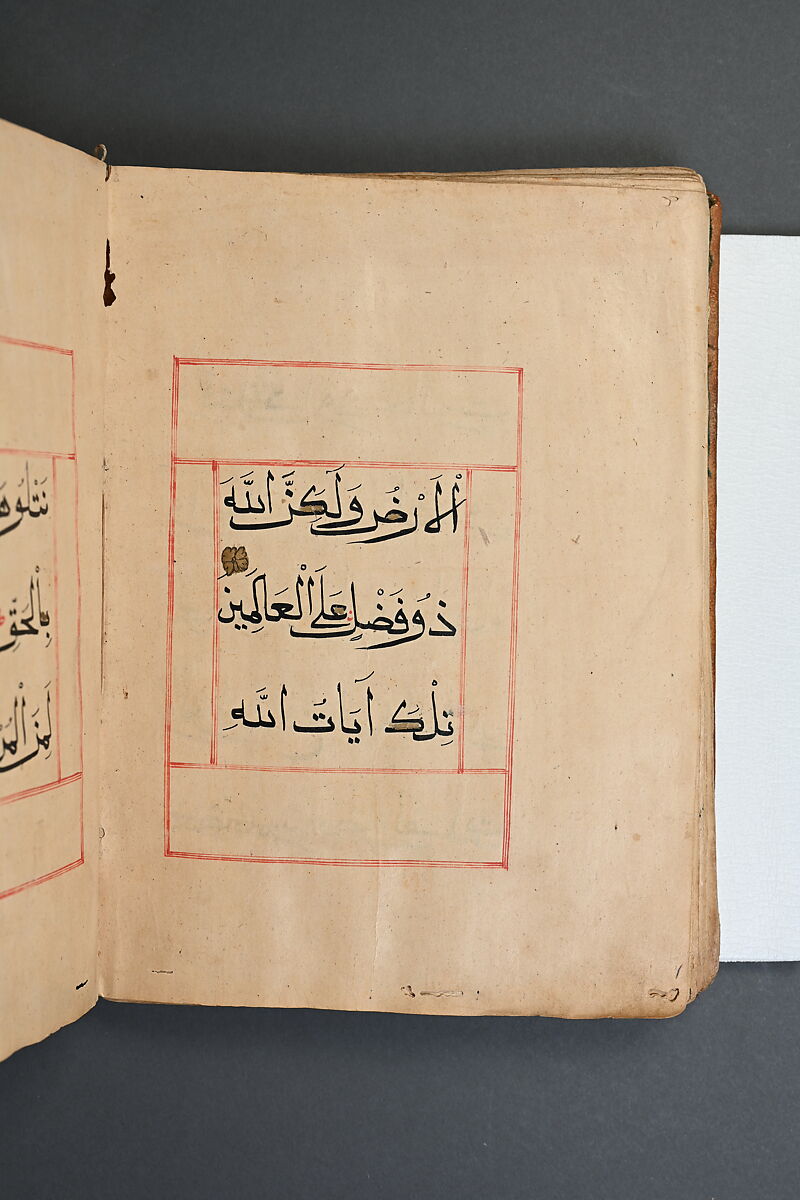 الْأَرْضُ وَلَٰكِنَّ اللَّهَ
ذُو فَضْلٍ عَلَى الْعَالَمِينَ
تِلْكَ آيَاتُ اللَّهِ
نَتْلُوهَا
بِالْحَقِّ
لَمِنَ